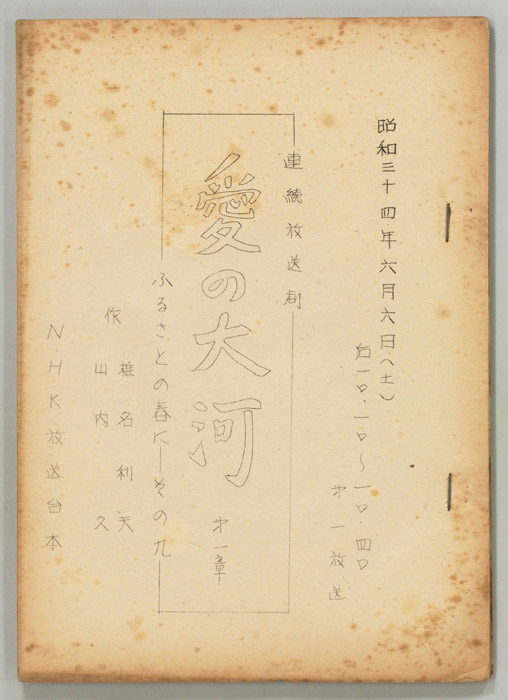 昭和三十四年六月六日(土)
后一〇・一〇〜一〇・四〇
第一放送
連続放送劇
愛の大河
第一章
ふるさとの春に―その九
作
椎名利夫
山内久
N・HK放送台本